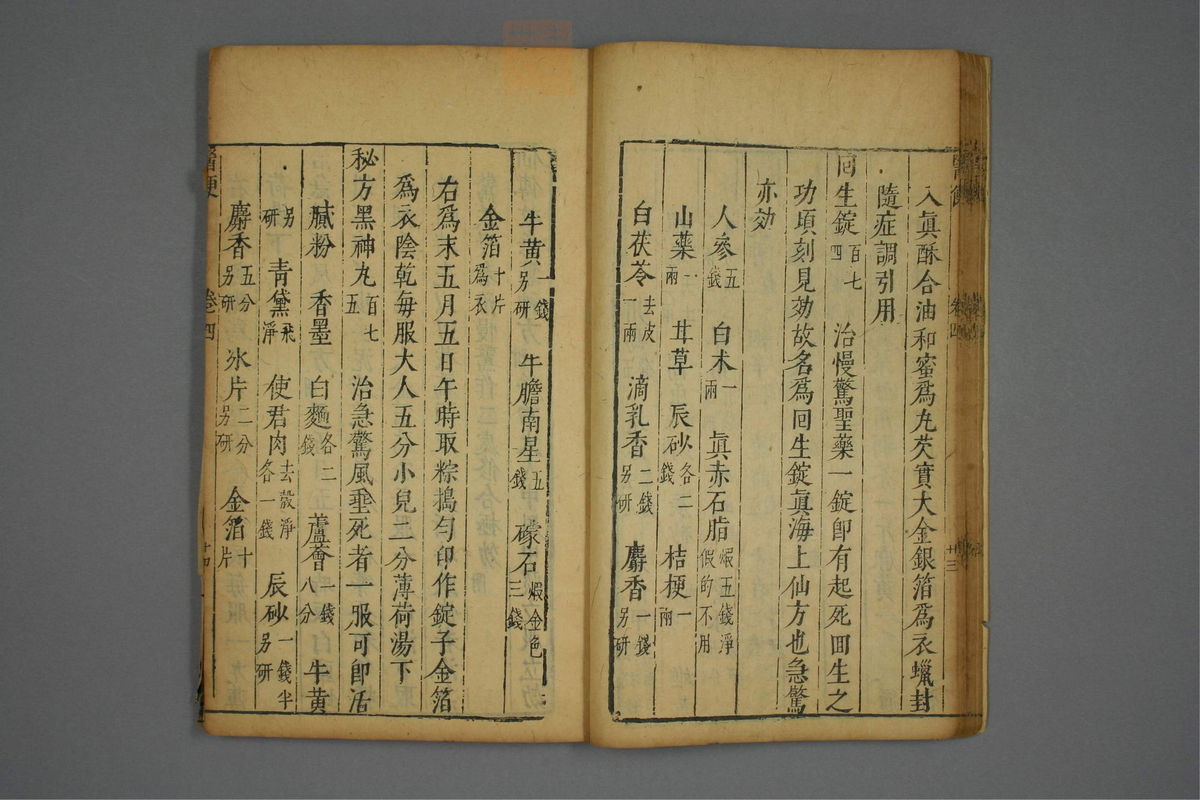 入眞酥合油和蜜爲丸芡實大金銀箔爲衣蠟封
隨症調引用
回生錠百七四 治慢驚聖藥一錠卽有起死回生之
功頃刻見効故名爲回生錠眞海上仙方也急驚
亦効
人參五錢 白朮一兩 眞赤石脂煆五錢淨假的不用
山藥一兩 甘草 辰砂各二錢 桔梗一兩
白茯苓去皮一兩 滴乳香二錢另研 麝香一錢另研
卷四 十三
牛黃一錢另研 牛膽南星五錢 礞石煆金色三錢
金箔十片爲衣
右爲末五月五日午時取粽搗勻印作錠子金箔
爲衣陰乾每服大人五分小兒二分薄荷湯下
秘方黑神丸百七五 治急驚風垂死者一服可卽活
膩粉 香墨 白麵各二錢 蘆薈一錢八分 牛黃
另研 青黛飛淨 使君肉去殼淨各一錢 辰砂一錢半另研
麝香五分另研 氷片二分另研 金箔十片
卷四 十四